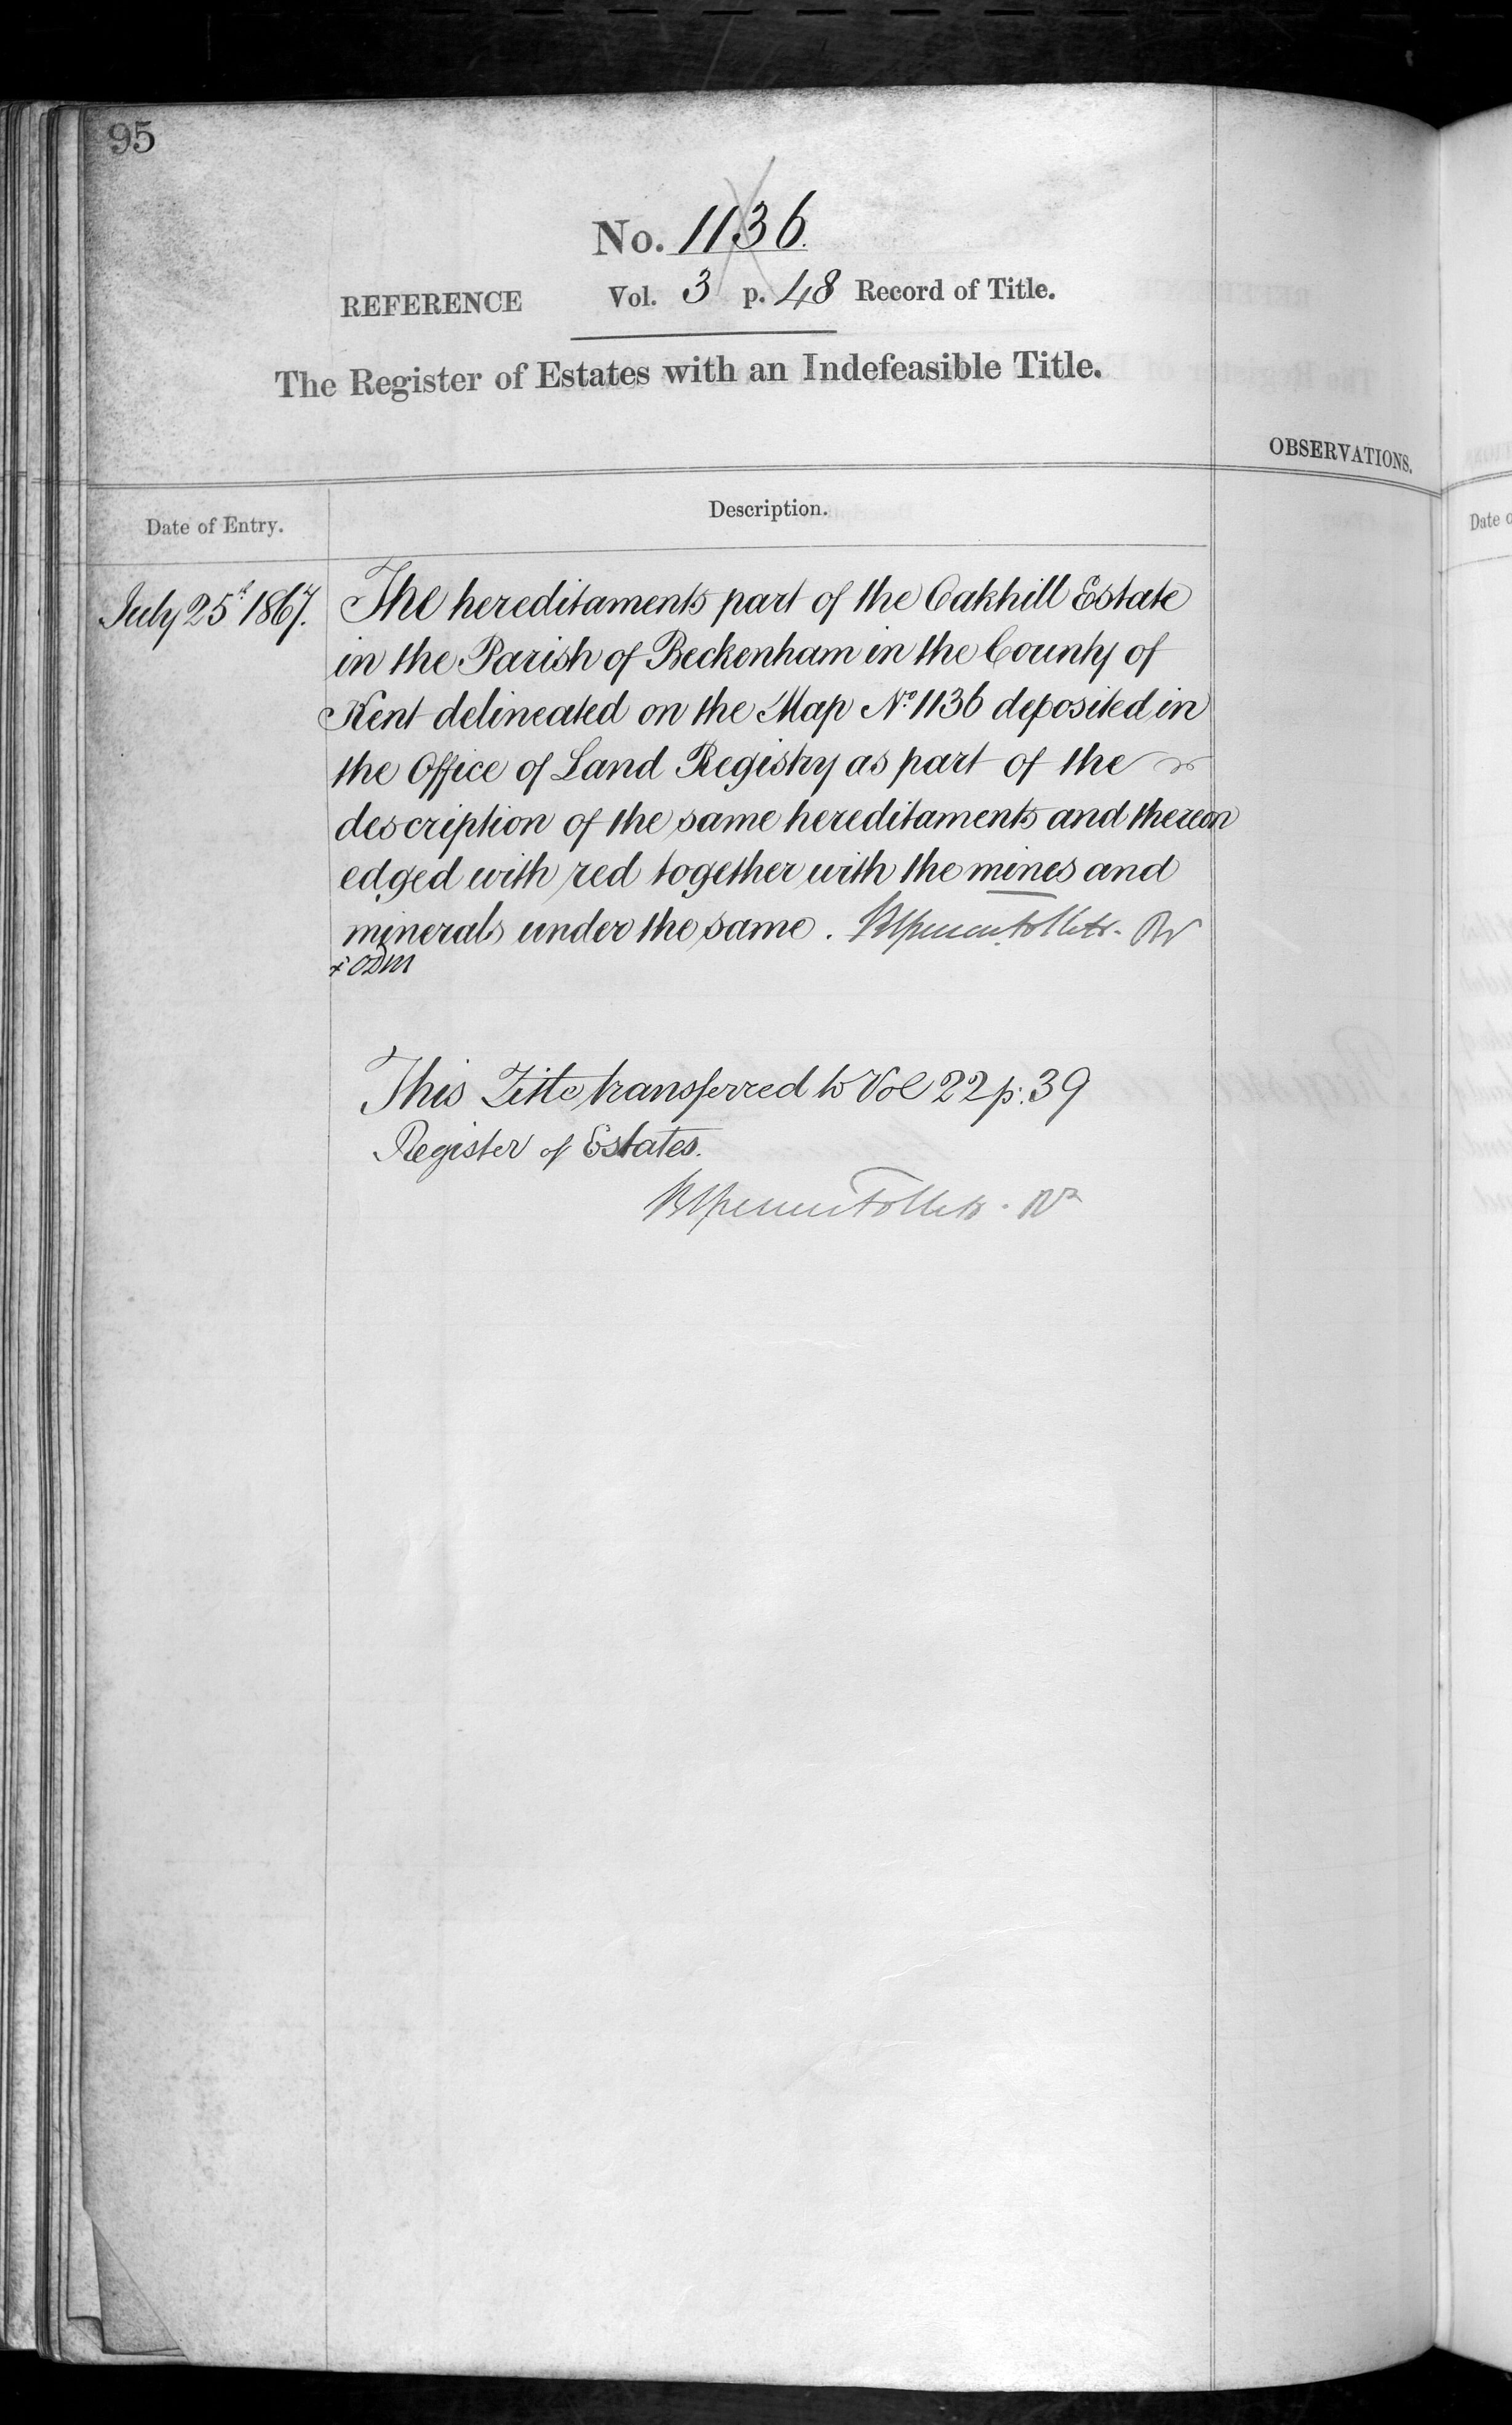 95
No. 1136.
REFERENCE Vol. 3 p. 48 Record of Title.
The Register of Estates with an Indefeasible Title.
OBSERVATIONS.
Date of Entry.
Description.
July 25t 1867.
The hereditaments part of the Oakhill Estate
in the Parish of Beckenham in the County of
Kent delineated on the Map No. 1136 deposited in
the Office of Land Registry as part of the
description of the same hereditaments and thereon
edged with red together with the mines and
minerals under the same.
This Title transferred to Vol 22 p. 39
Register of Estates.